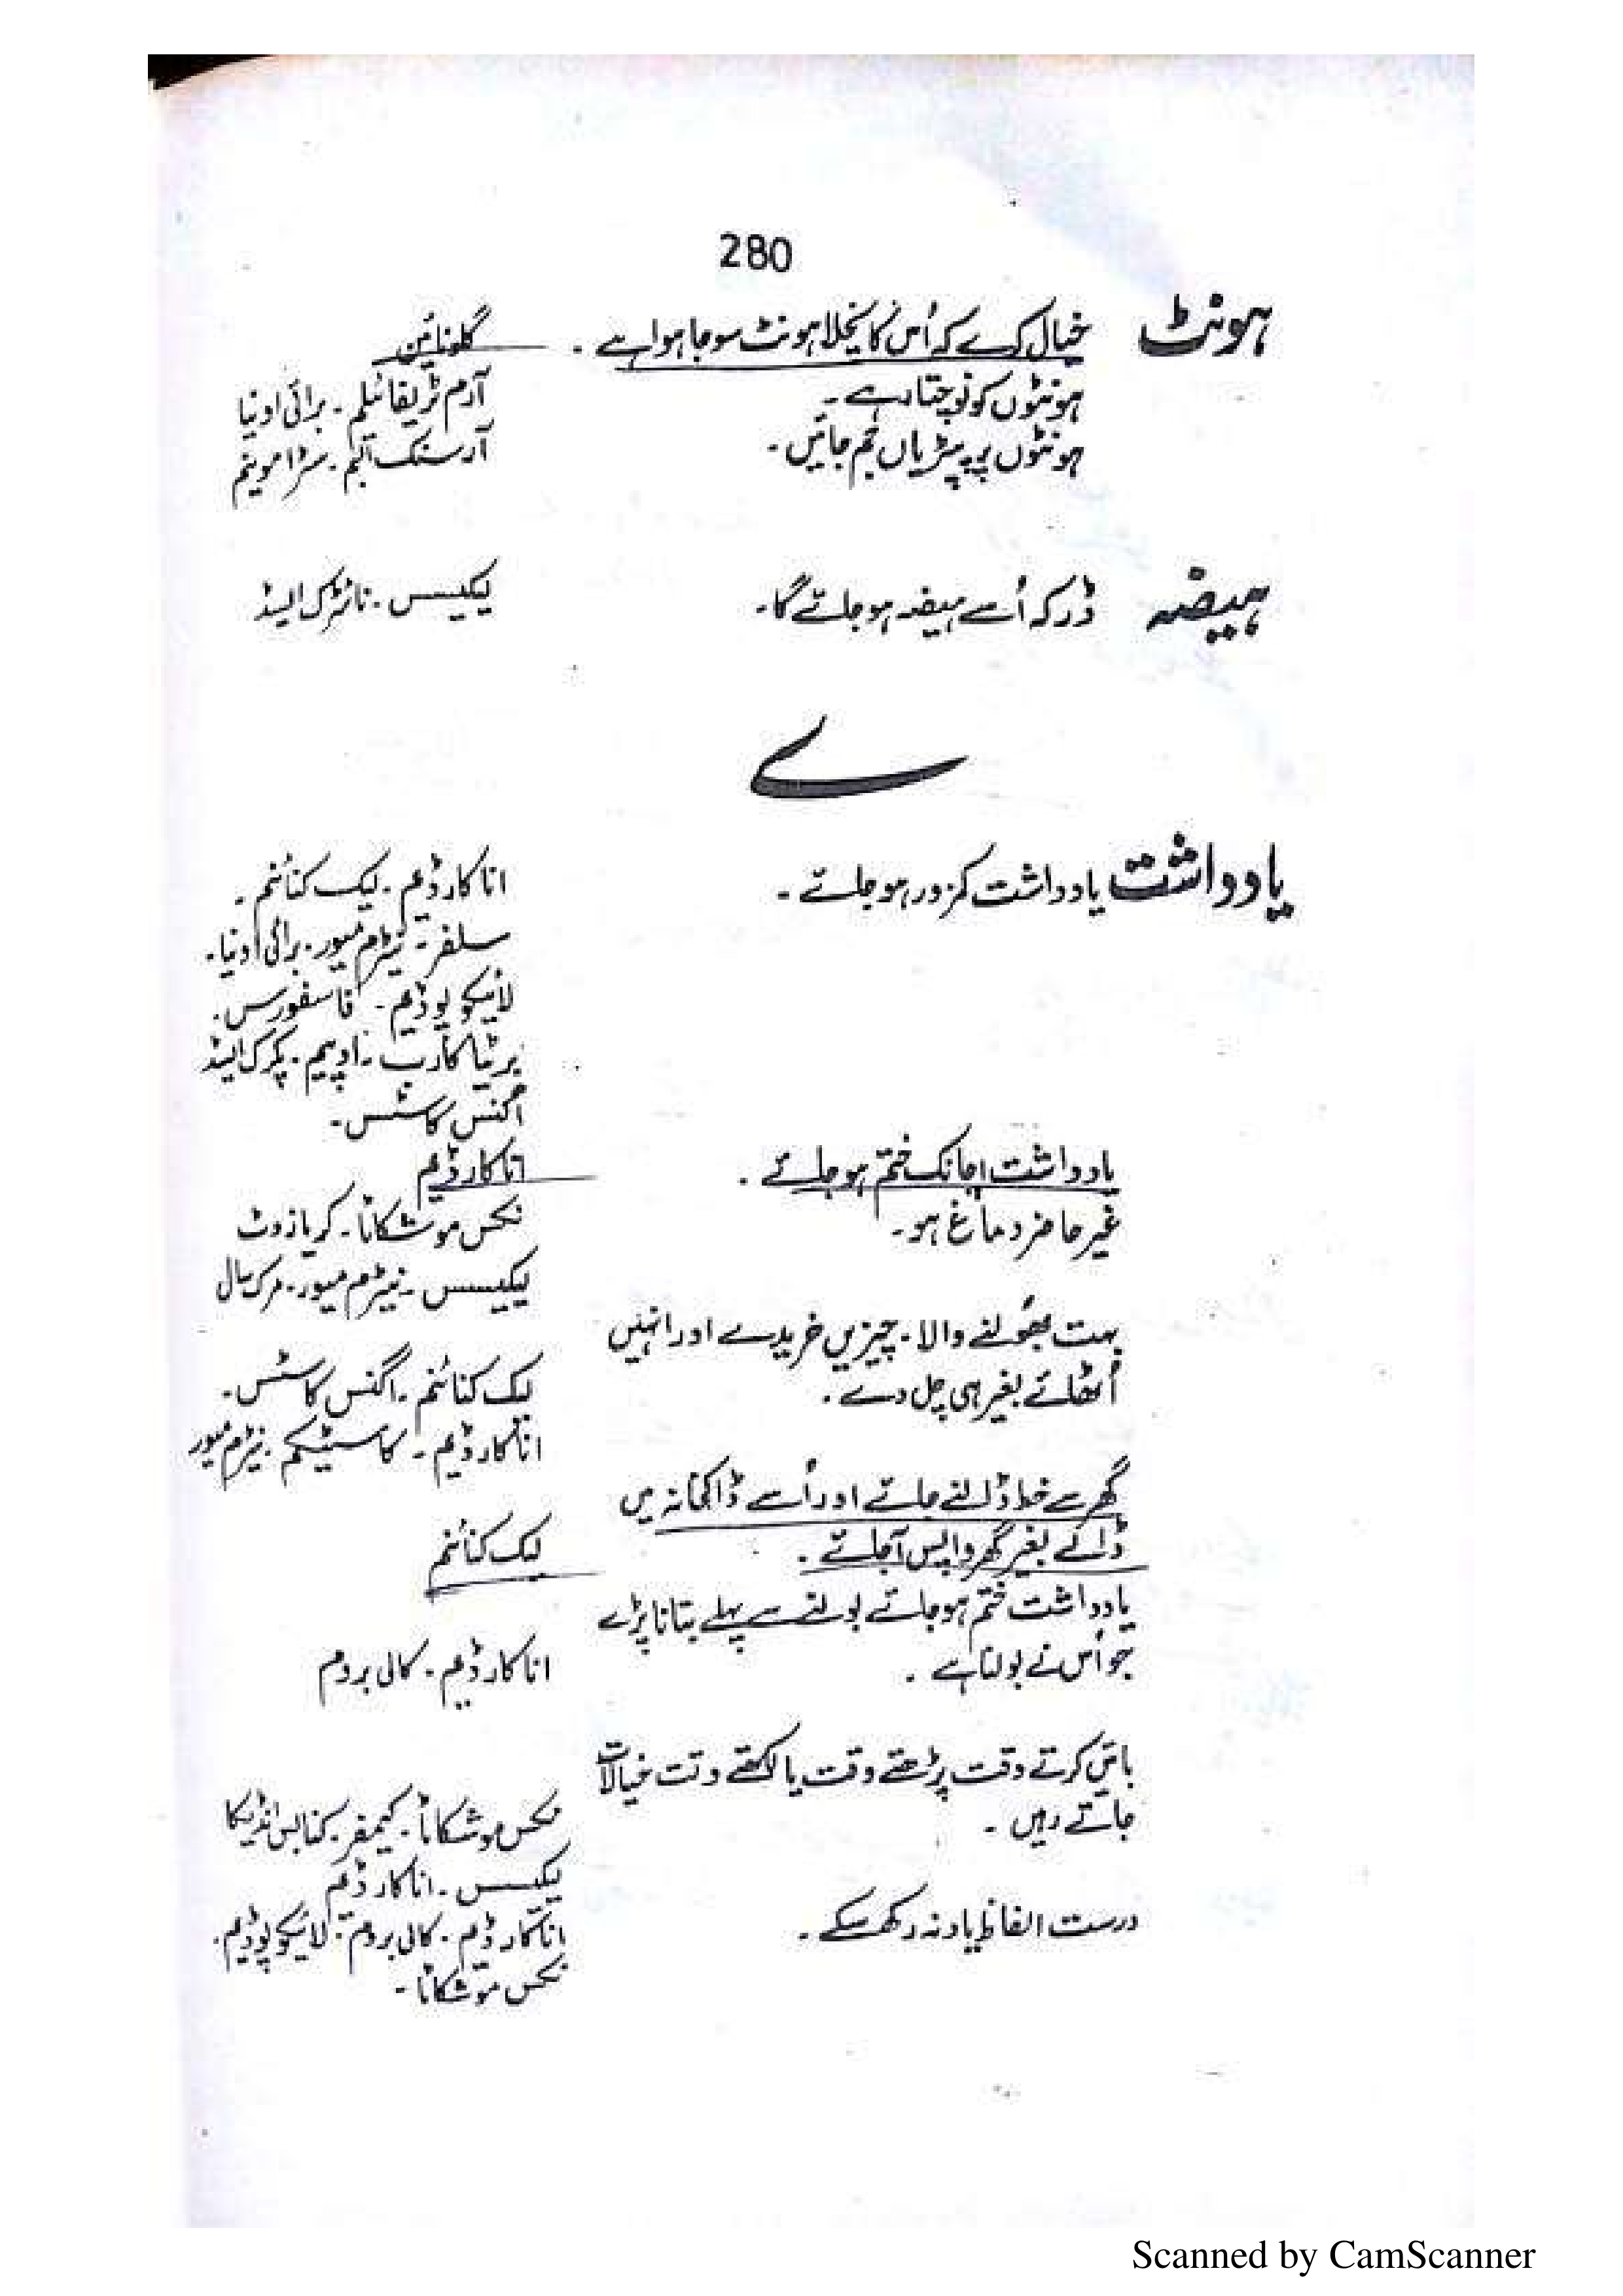 280
ہونٹ خیال کرے کہ اُس کا نچلا ہونٹ سوجا ہوا ہے۔ گلونائین
ہونٹوں کو نوچتا رہے۔ آرم ٹریفائیلم۔ برائی اونیا
ہونٹوں پر پیٹریاں جم جائیں۔ آرسنک البم۔ سٹرامونیم
ہیضہ ڈر کہ اُسے ہیضہ ہو جائے گا۔ لیکیسس۔ نائٹرک ایسڈ
ے
یادداشت یادداشت کمزور ہو جائے۔ اناکارڈیم۔ لیک کنائنم۔
سلفر۔ نیٹرم میور۔ برائی اونیا۔
لائیکوپوڈیم۔ فاسفورس۔
برٹیا کارب۔ اوپیم۔ پکرک ایسڈ
اگنس کاسٹس۔
یادداشت اچانک ختم ہو جائے۔ اناکارڈیم
غیر حاضر دماغ ہو۔ نکس موشکاٹا۔ کریازوٹ
لیکیسس۔ نیٹرم میور۔ مرک سال
بہت بھُولنے والا۔ چیزیں خریدے اور انہیں
اُٹھائے بغیر ہی چل دے۔ لیک کنائنم۔ اگنس کاسٹس۔
اناکارڈیم۔ کاسٹیکم۔ نیٹرم میور
گھر سے خط ڈالنے جائے اور اُسے ڈاکخانہ میں
ڈالے بغیر گھر واپس آجائے۔ لیک کنائنم
یادداشت ختم ہو جائے بولنے سے پہلے بتانا پڑے
جو اُس نے بولنا ہے۔ اناکارڈیم۔ کالی بروم
باتیں کرتے وقت پڑھتے وقت یا لکھتے وقت خیالات
جاتے رہیں۔ نکس موشکاٹا۔ کیمفر۔ کنابس انڈیکا
لیکیسس۔ اناکارڈیم
درست الفاظ یاد نہ رکھ سکے۔ اناکارڈیم۔ کالی بروم۔ لائیکوپوڈیم۔
نکس موشکاٹا۔
Scanned by CamScanner